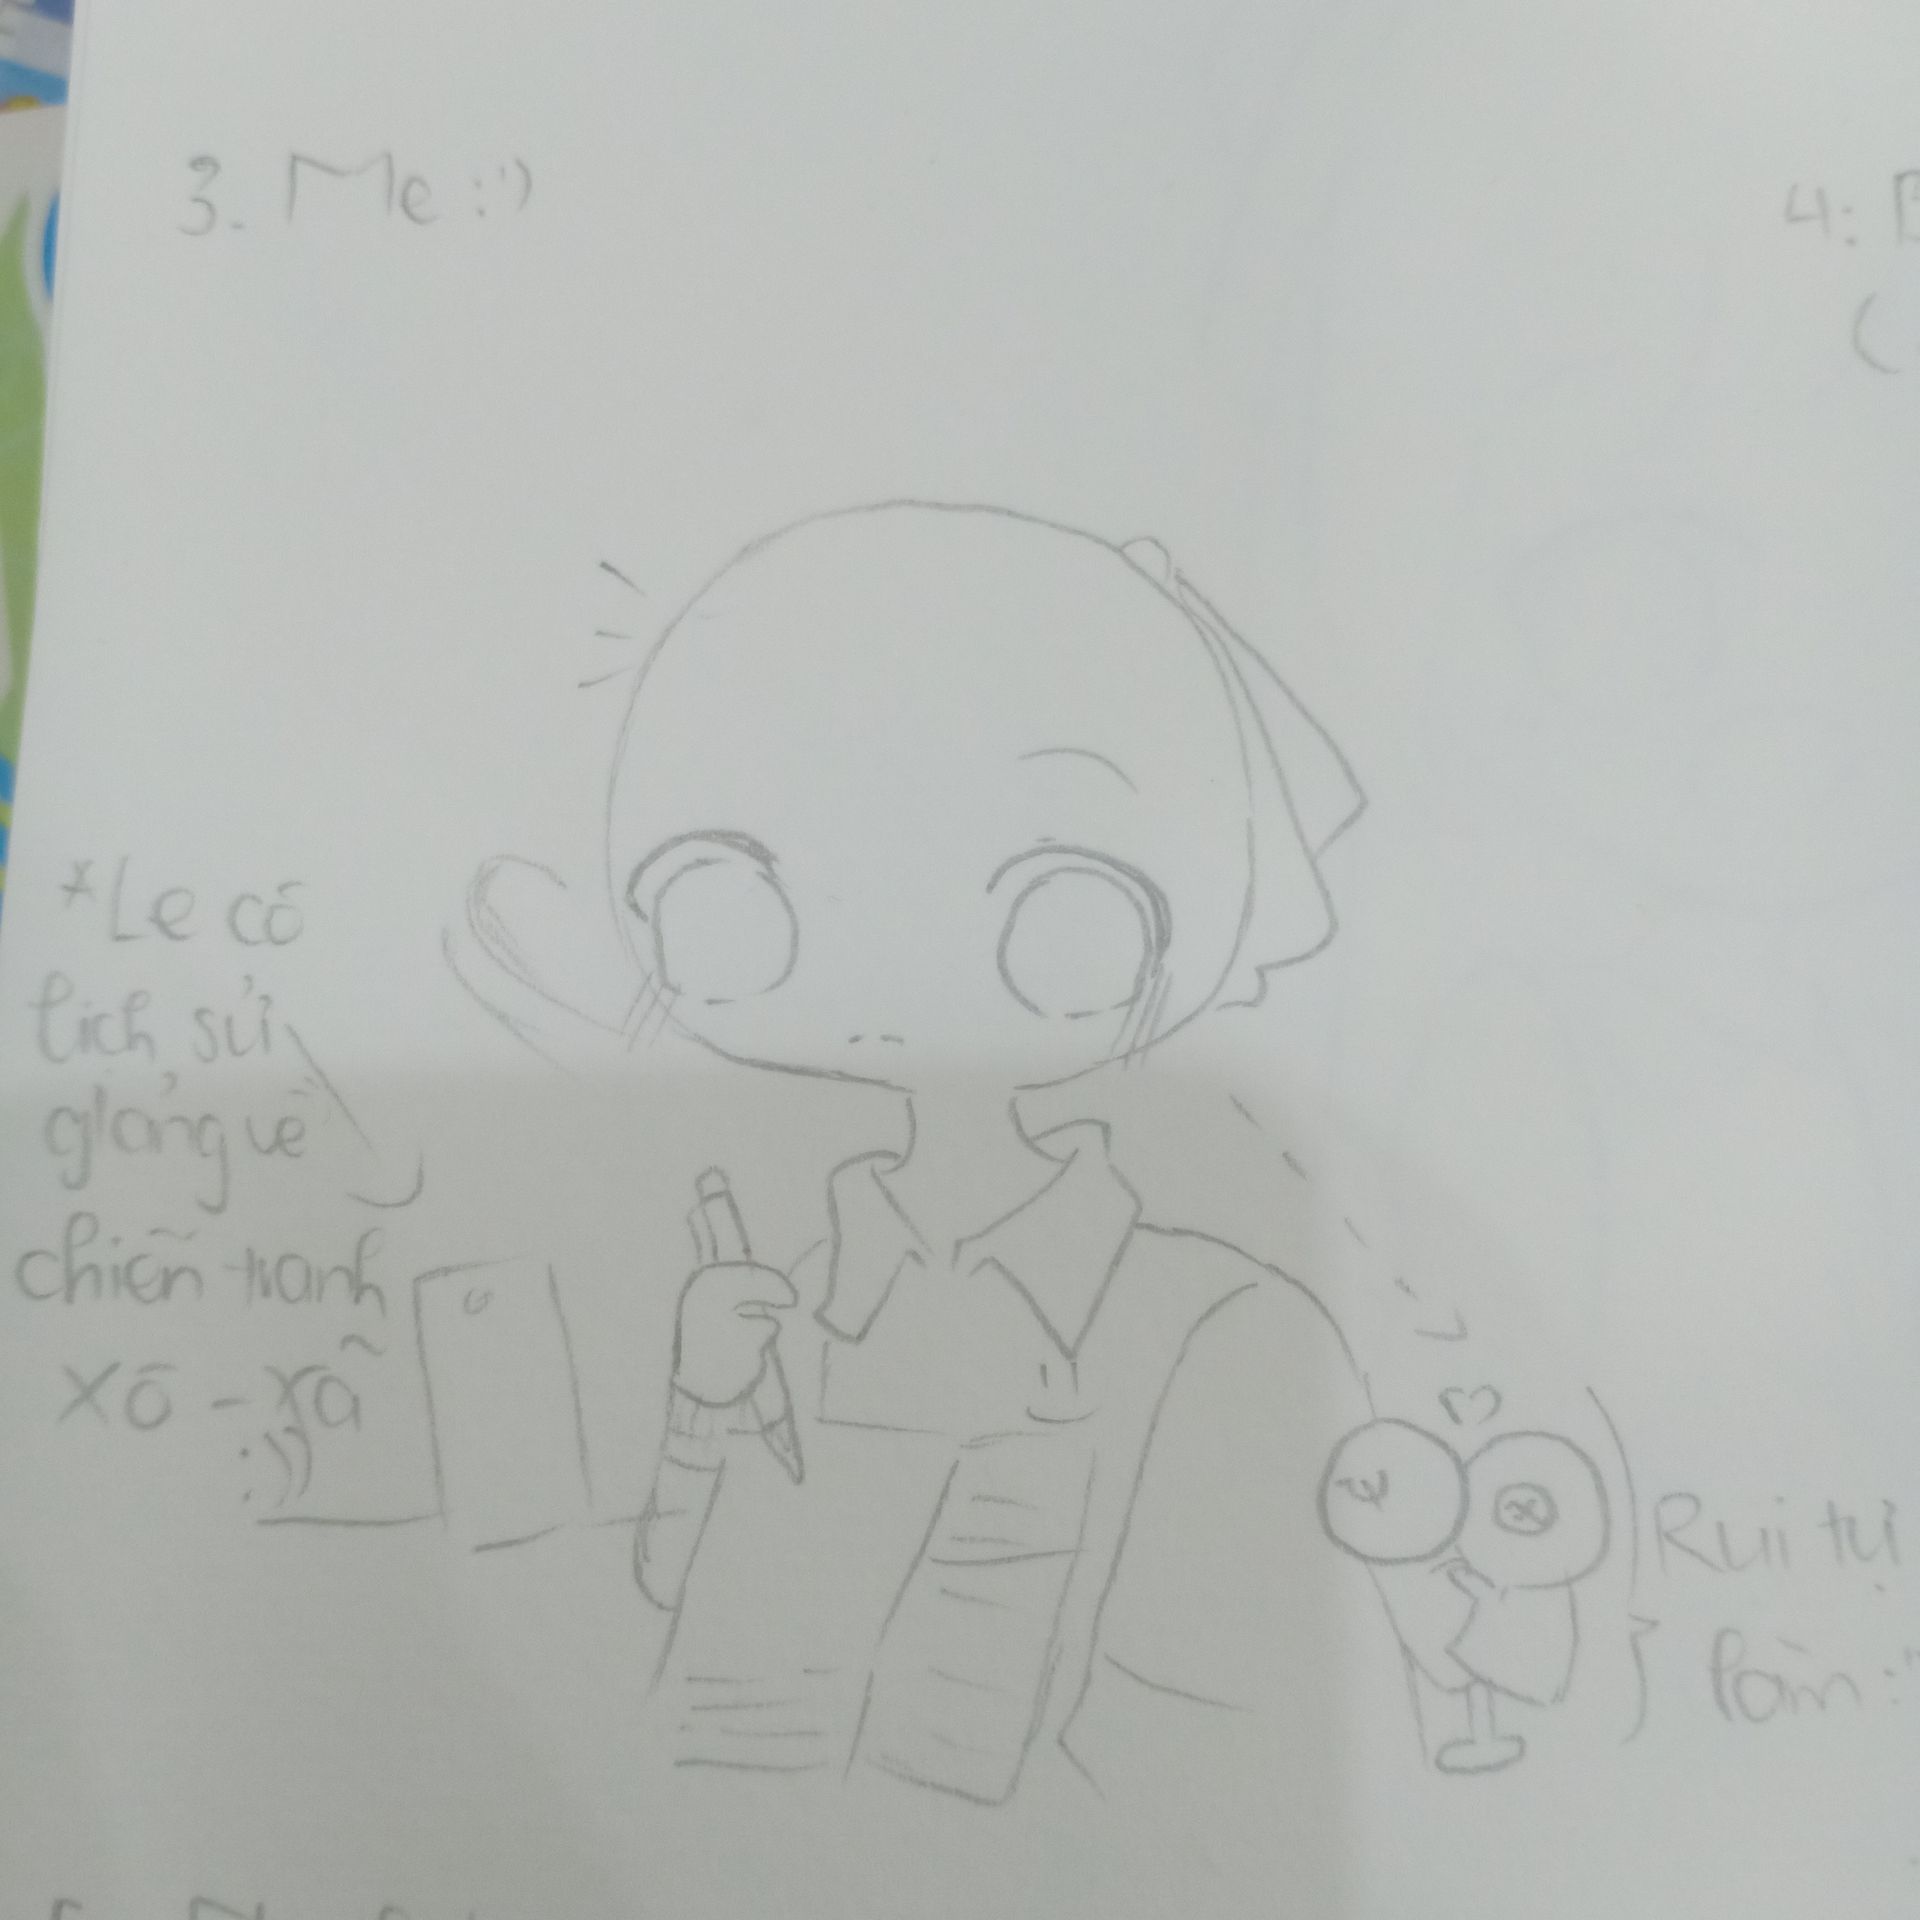 3. Me :')
4: B
(
*Le cô
lịch sử
giảng về
chiến tranh
XÔ - Xã
:))
Rui tự
làm :'